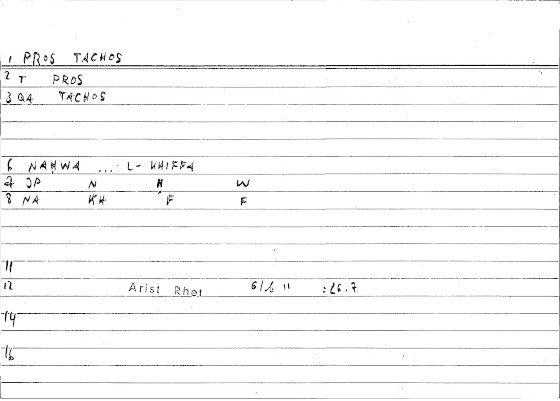 1 PROS TACHOS
2 T PROS
3 QA TACHOS
6 NAḤWA ... L- KHIFFA
7 JP N Ḥ W
8 NA KH F F
11
12 Arist Rhet :26.7
14
16